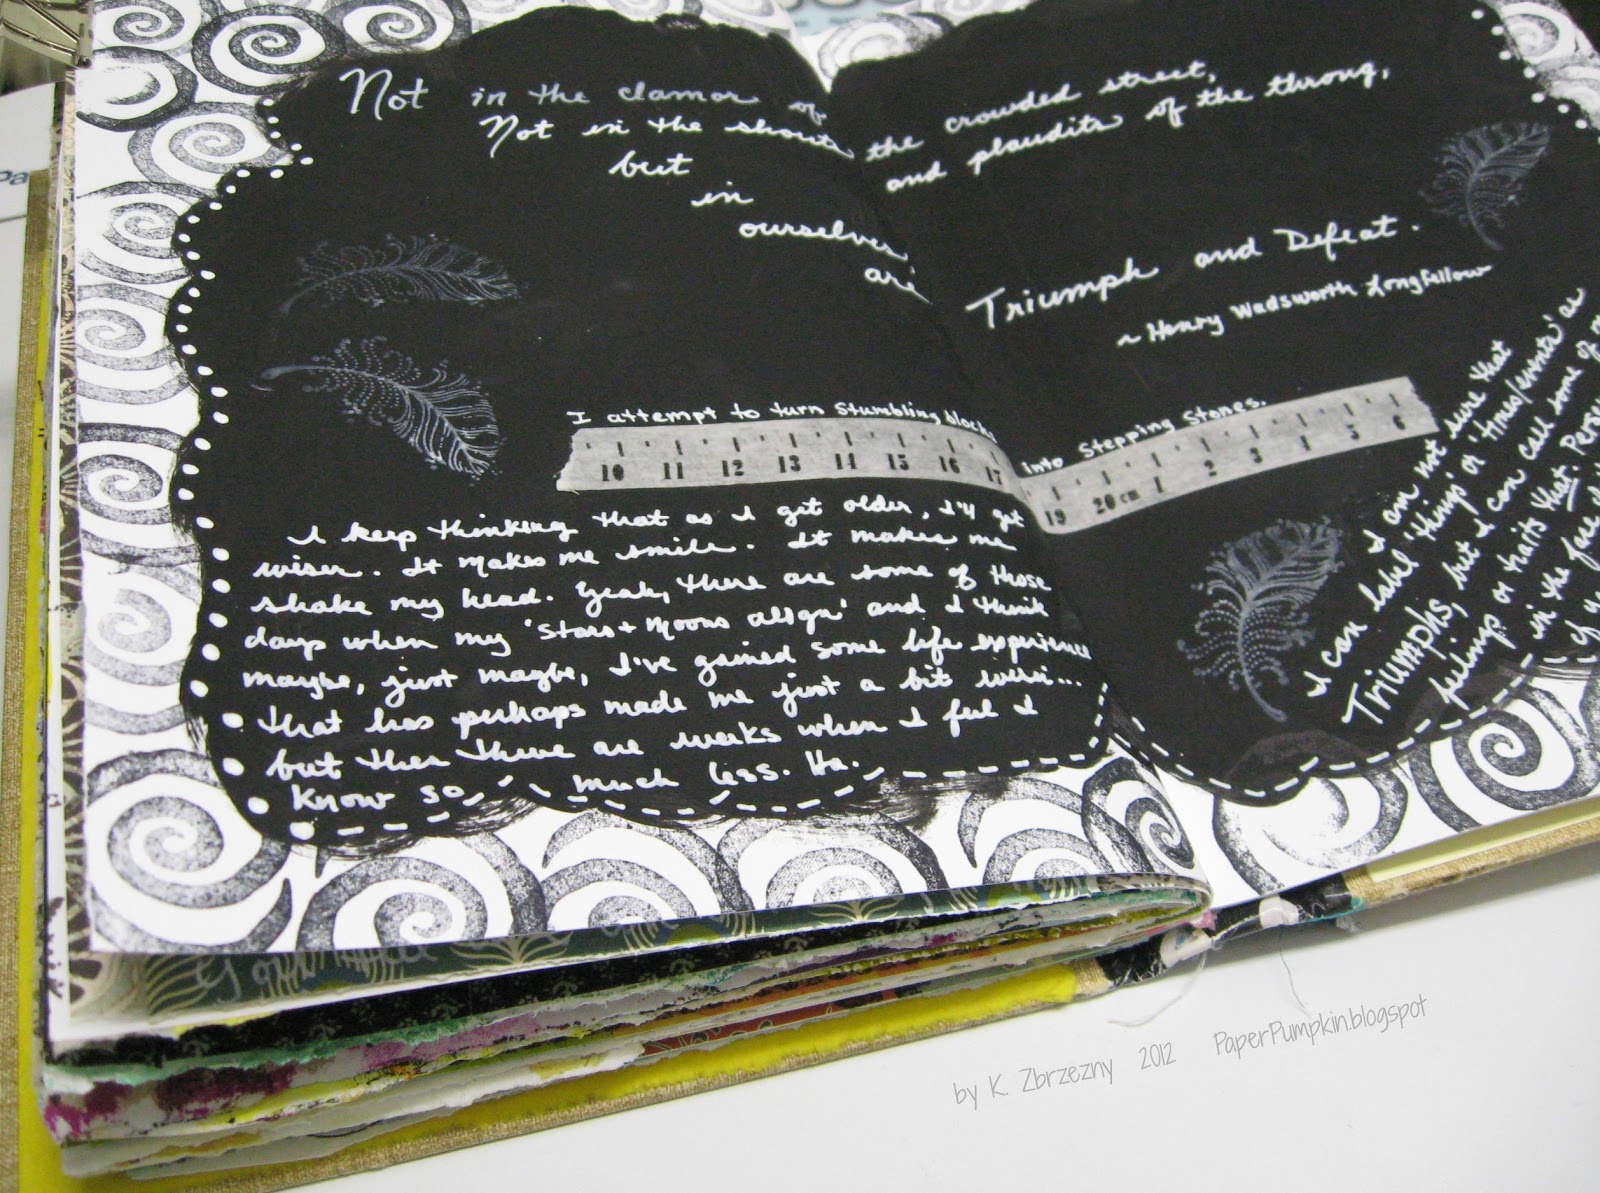 Not in the clamor of the crowded street,
Not in the shouts and plaudits of the throng,
but
in
ourselves
are
Triumph and Defeat.
~ Henry Wadsworth Longfellow
I attempt to turn Stumbling blocks into Stepping Stones.
10 11 12 13 14 15 16 17 19 20cm 1 2 3 4 5 6
I keep thinking that as I get older, I'll get
wiser. It makes me smile. It makes me
shake my head. Yeah, there are some of those
days when my 'Stars + Moons align' and I think
maybe, just maybe, I've gained some life experience
that has perhaps made me just a bit wiser...
but then there are weeks when I feel I
know so much less. Ha.
I am not sure that
I can label 'things' or 'times/events' as
Triumphs, but I can call some of my
feelings or traits that. Pers
in the face
of
by K. Zbrzezny 2012 PaperPumpkin.blogspot